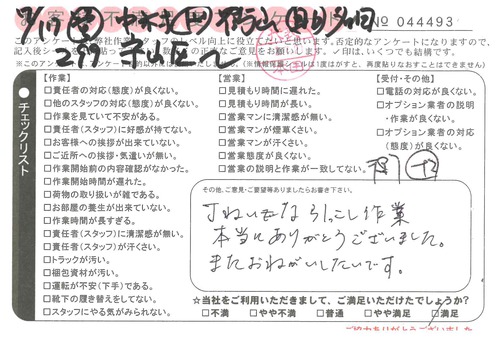 № 044493
このアンケートは弊社作業
レベル向上に役立てたいと思います。否定的なアンケートになりますので、
チェックリスト
【作業】
□責任者の対応(態度)が良くない。
□他のスタッフの対応(態度)が良くない。
□作業を見ていて不安がある。
□責任者(スタッフ)に好感が持てない。
□お客様への挨拶が出来ていない。
□ご近所への挨拶・気遣いが無い。
□作業開始前の内容確認がなかった。
□作業開始時間が遅れた。
□荷物の取り扱いが雑である。
□お部屋の養生が出来ていない。
□作業時間が長すぎる。
□責任者(スタッフ)に清潔感が無い。
□責任者(スタッフ)が汗くさい。
□トラックが汚い。
□梱包資材が汚い。
□運転が不安(下手)である。
□靴下の履き替えをしてない。
□スタッフにやる気がみられない。
【営業】
□見積もり時間に遅れた。
□見積もり時間が長い。
□営業マンに清潔感が無い。
□営業マンが煙草くさい。
□営業マンが汗くさい。
□営業態度が良くない。
□営業の説明と作業が一致してない。
【受付・その他】
□電話の対応が良くない。
□オプション業者の説明
・作業が良くない。
□オプション業者の対応
(態度)が良くない。
その他、ご意見・ご要望等ありましたらお書き下さい。
丁ねいな引っこし作業
本当にありがとうございました。
またおねがいしたいです。
☆当社をご利用いただきまして、ご満足いただけたでしょうか?
□不満 □やや不満 □普通 □やや満足 □満足
ご協力ありがとうございました